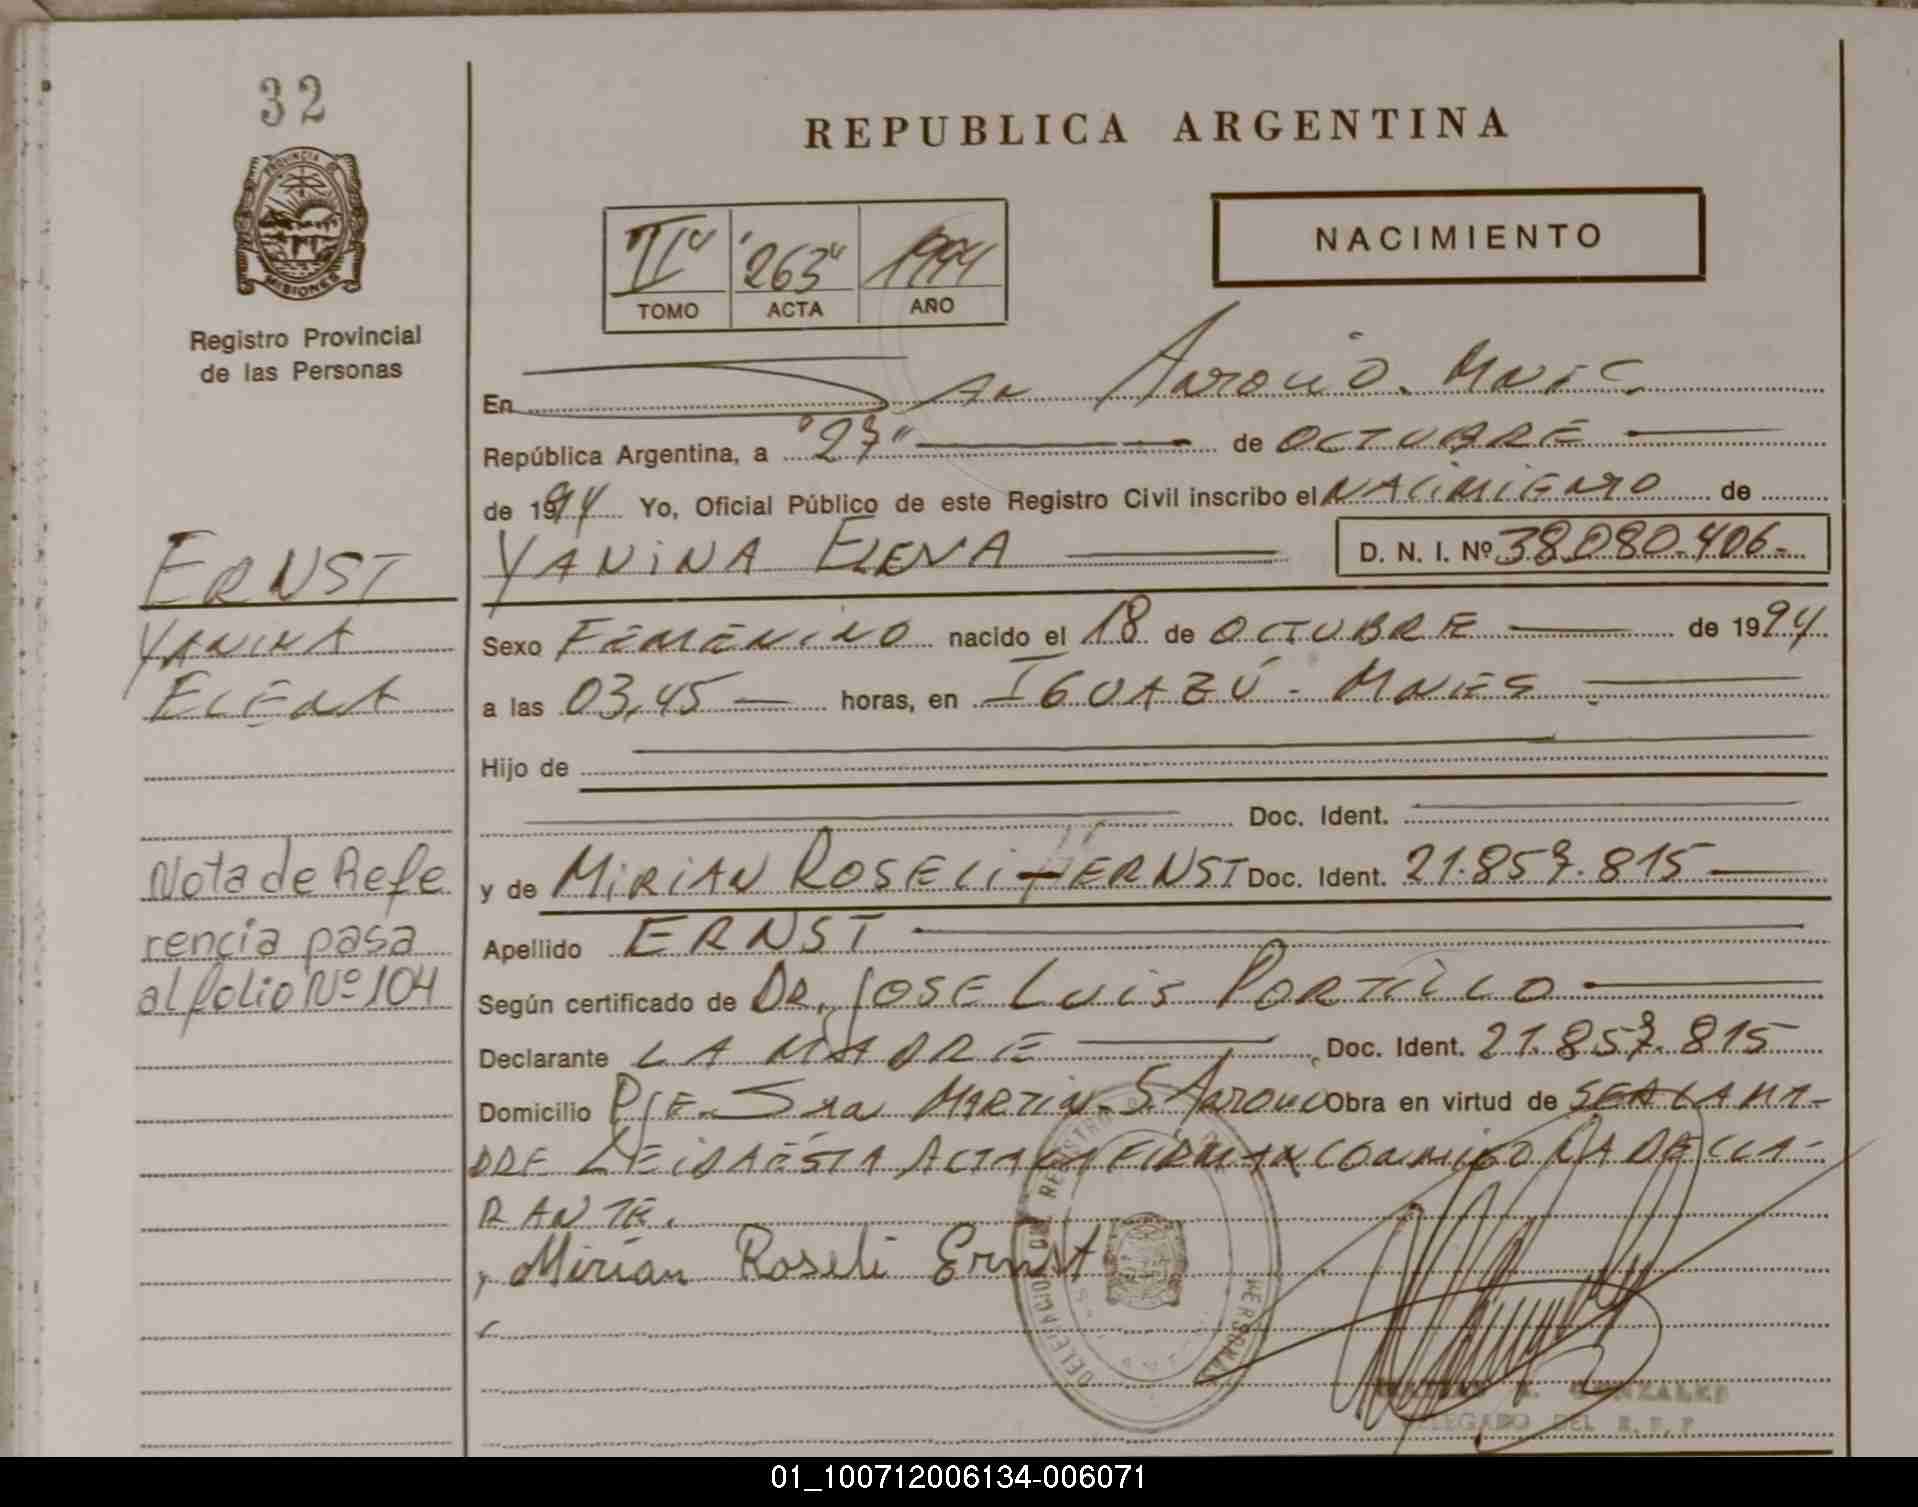 32
REPUBLICA ARGENTINA
NACIMIENTO
"II" "263" 1994
TOMO ACTA AÑO
PROVINCIA DE
MISIONES
Registro Provincial
de las Personas
En
Mnes.
República Argentina, a "27" de OCTUBRE
de 1994 Yo, Oficial Público de este Registro Civil inscribo el NACIMIENTO de
YANINA ELENA D. N. I. Nº 38.080.406-
ERNST
YANINA
ELENA
Sexo FEMENINO nacido el 18 de OCTUBRE de 1994
a las 03,45 horas, en IGUAZÚ - MNES
Hijo de
Doc. Ident.
y de MIRIAN ROSELI ERNST Doc. Ident. 21.857.815
Nota de Refe
rencia pasa
al folio Nº 104
Apellido ERNST
Según certificado de DR. JOSE LUIS PORTILLO
Declarante LA MADRE Doc. Ident. 21.857.815
Domicilio MARTIN Obra en virtud de SER LA MA-
DRE LEIDA ESTA ACTA LA FIRMAN CONMIGO LA DECLA-
RANTE.
Mirian Roseli Ernst
DELEGACION DEL REGISTRO PERSONAS
GONZALES
DELEGADO DEL R. P. P.
01_100712006134-006071